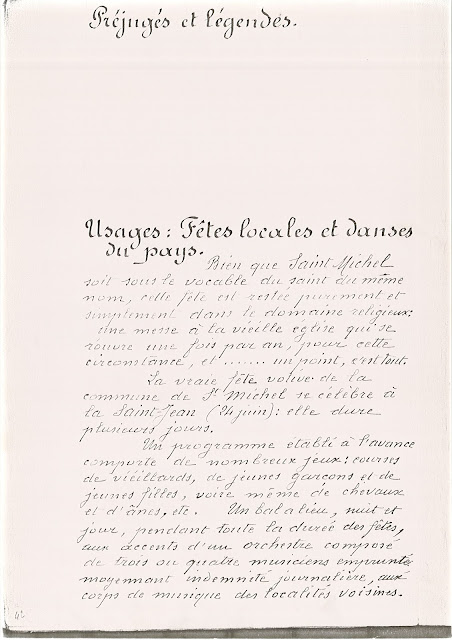 Préjugés et légendes.
Usages : Fêtes locales et danses
du pays.
Bien que Saint Michel
soit sous le vocable du saint du même
nom, cette fête est restée purement et
simplement dans le domaine religieux:
une messe à la vieille église qui se
rouvre une fois par an, pour cette
circonstance, et ....... un point, c'est tout.
La vraie fête votive de la
commune de St Michel se célèbre à
la Saint-Jean (24 juin) : elle dure
plusieurs jours.
Un programme établi à l'avance
comporte de nombreux jeux : courses
de vieillards, de jeunes garçons et de
jeunes filles, voire même de chevaux
et d'ânes, etc. Un bal a lieu, nuit et
jour, pendant toute la durée des fêtes,
aux accents d'un orchestre composé
de trois ou quatre musiciens empruntés
moyennant indemnité journalière, aux
corps de musique des localités voisines.
42